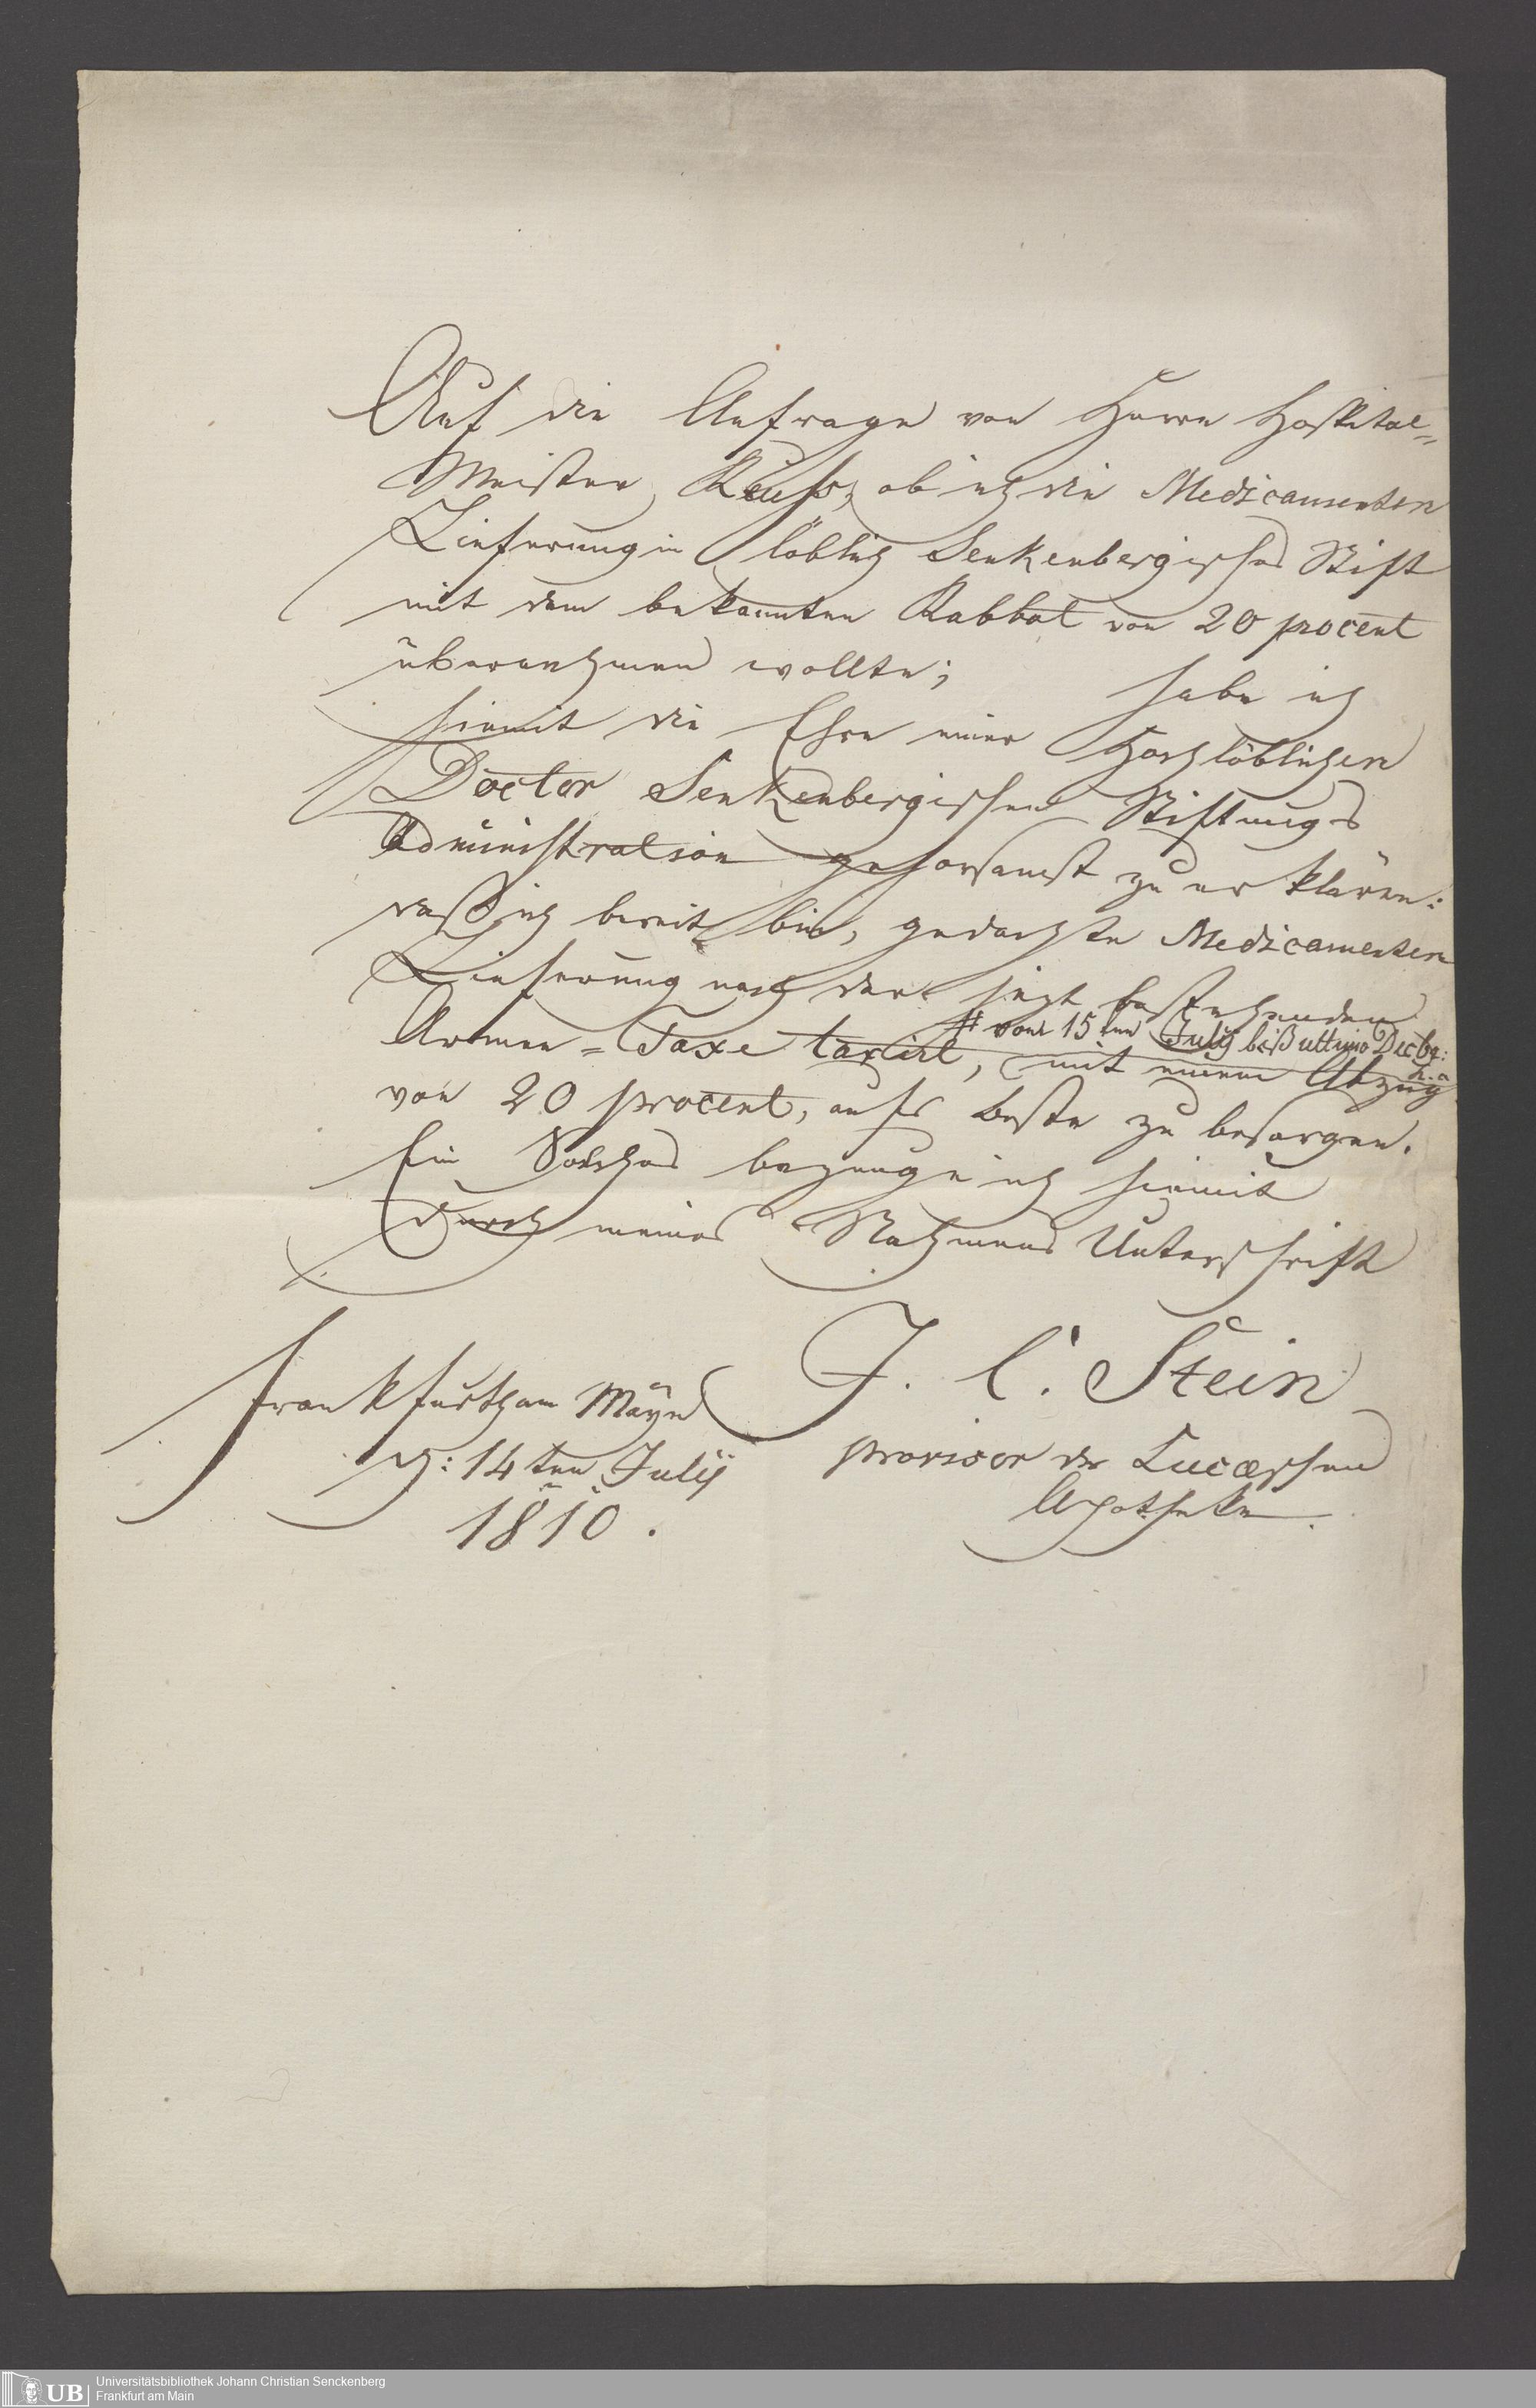 Auf die Anfrage von Herrn Hospital=
Meister Reuß, ob ich die Medicamenten
Lieferung in löblich Senkenbergisches Stift
mit dem bekannten Rabbat von 20 procent
übernehmen wollte; habe ich
hiemit die Ehre einer Hochlöblichen
Doctor Senkenbergischen Stiftungs
Administration gehorsamst zu erklären:
daß ich bereit bin, gedachte Medicamenten
Lieferung nach der jezt bestehenden
# vom 15ten Julÿ biß ultimo Decbr:
h. a
Armen=Taxe taxirt, mit einem Abzug
von 20 procent, aufs beste zu besorgen.
Ein Solches bezeuge ich hiemit
durch meines Nahmens Unterschrift
Frankfurth am Mayn
d: 14ten Julÿ
1810.
J. C. Stein
provisor der Lucæschen
Apotheke.
UB
Universitätsbibliothek Johann Christian Senckenberg
Frankfurt am Main